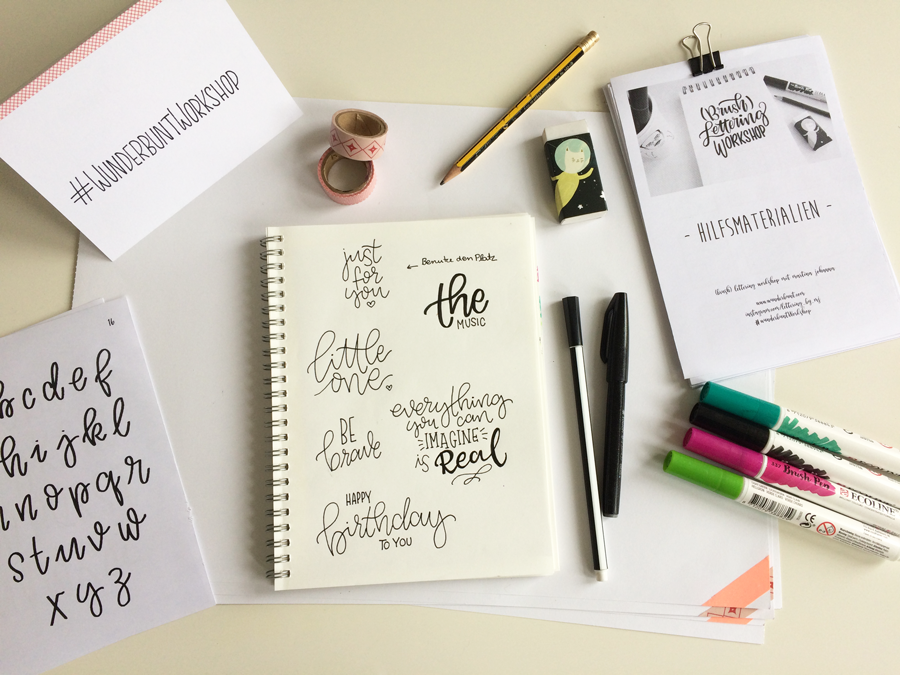 #WUNDERBUNTWORKSHOP
16
b c d e f
h i j k l
n o p q r
s t u v w
x y z
just
for
you
← Benutze den Platz
the
MUSIC
little
one
BE
brave
everything
you can
IMAGINE
is Real
HAPPY
birthday
TO YOU
(Brush)
Lettering
WORKSHOP
- HILFSMATERIALIEN -
(brush) lettering workshop mit
www.wunderbunt.com
instagram.com/lettering_by_mj
#wunderbuntWorkshop
Brush Pen
ECOLINE
CE